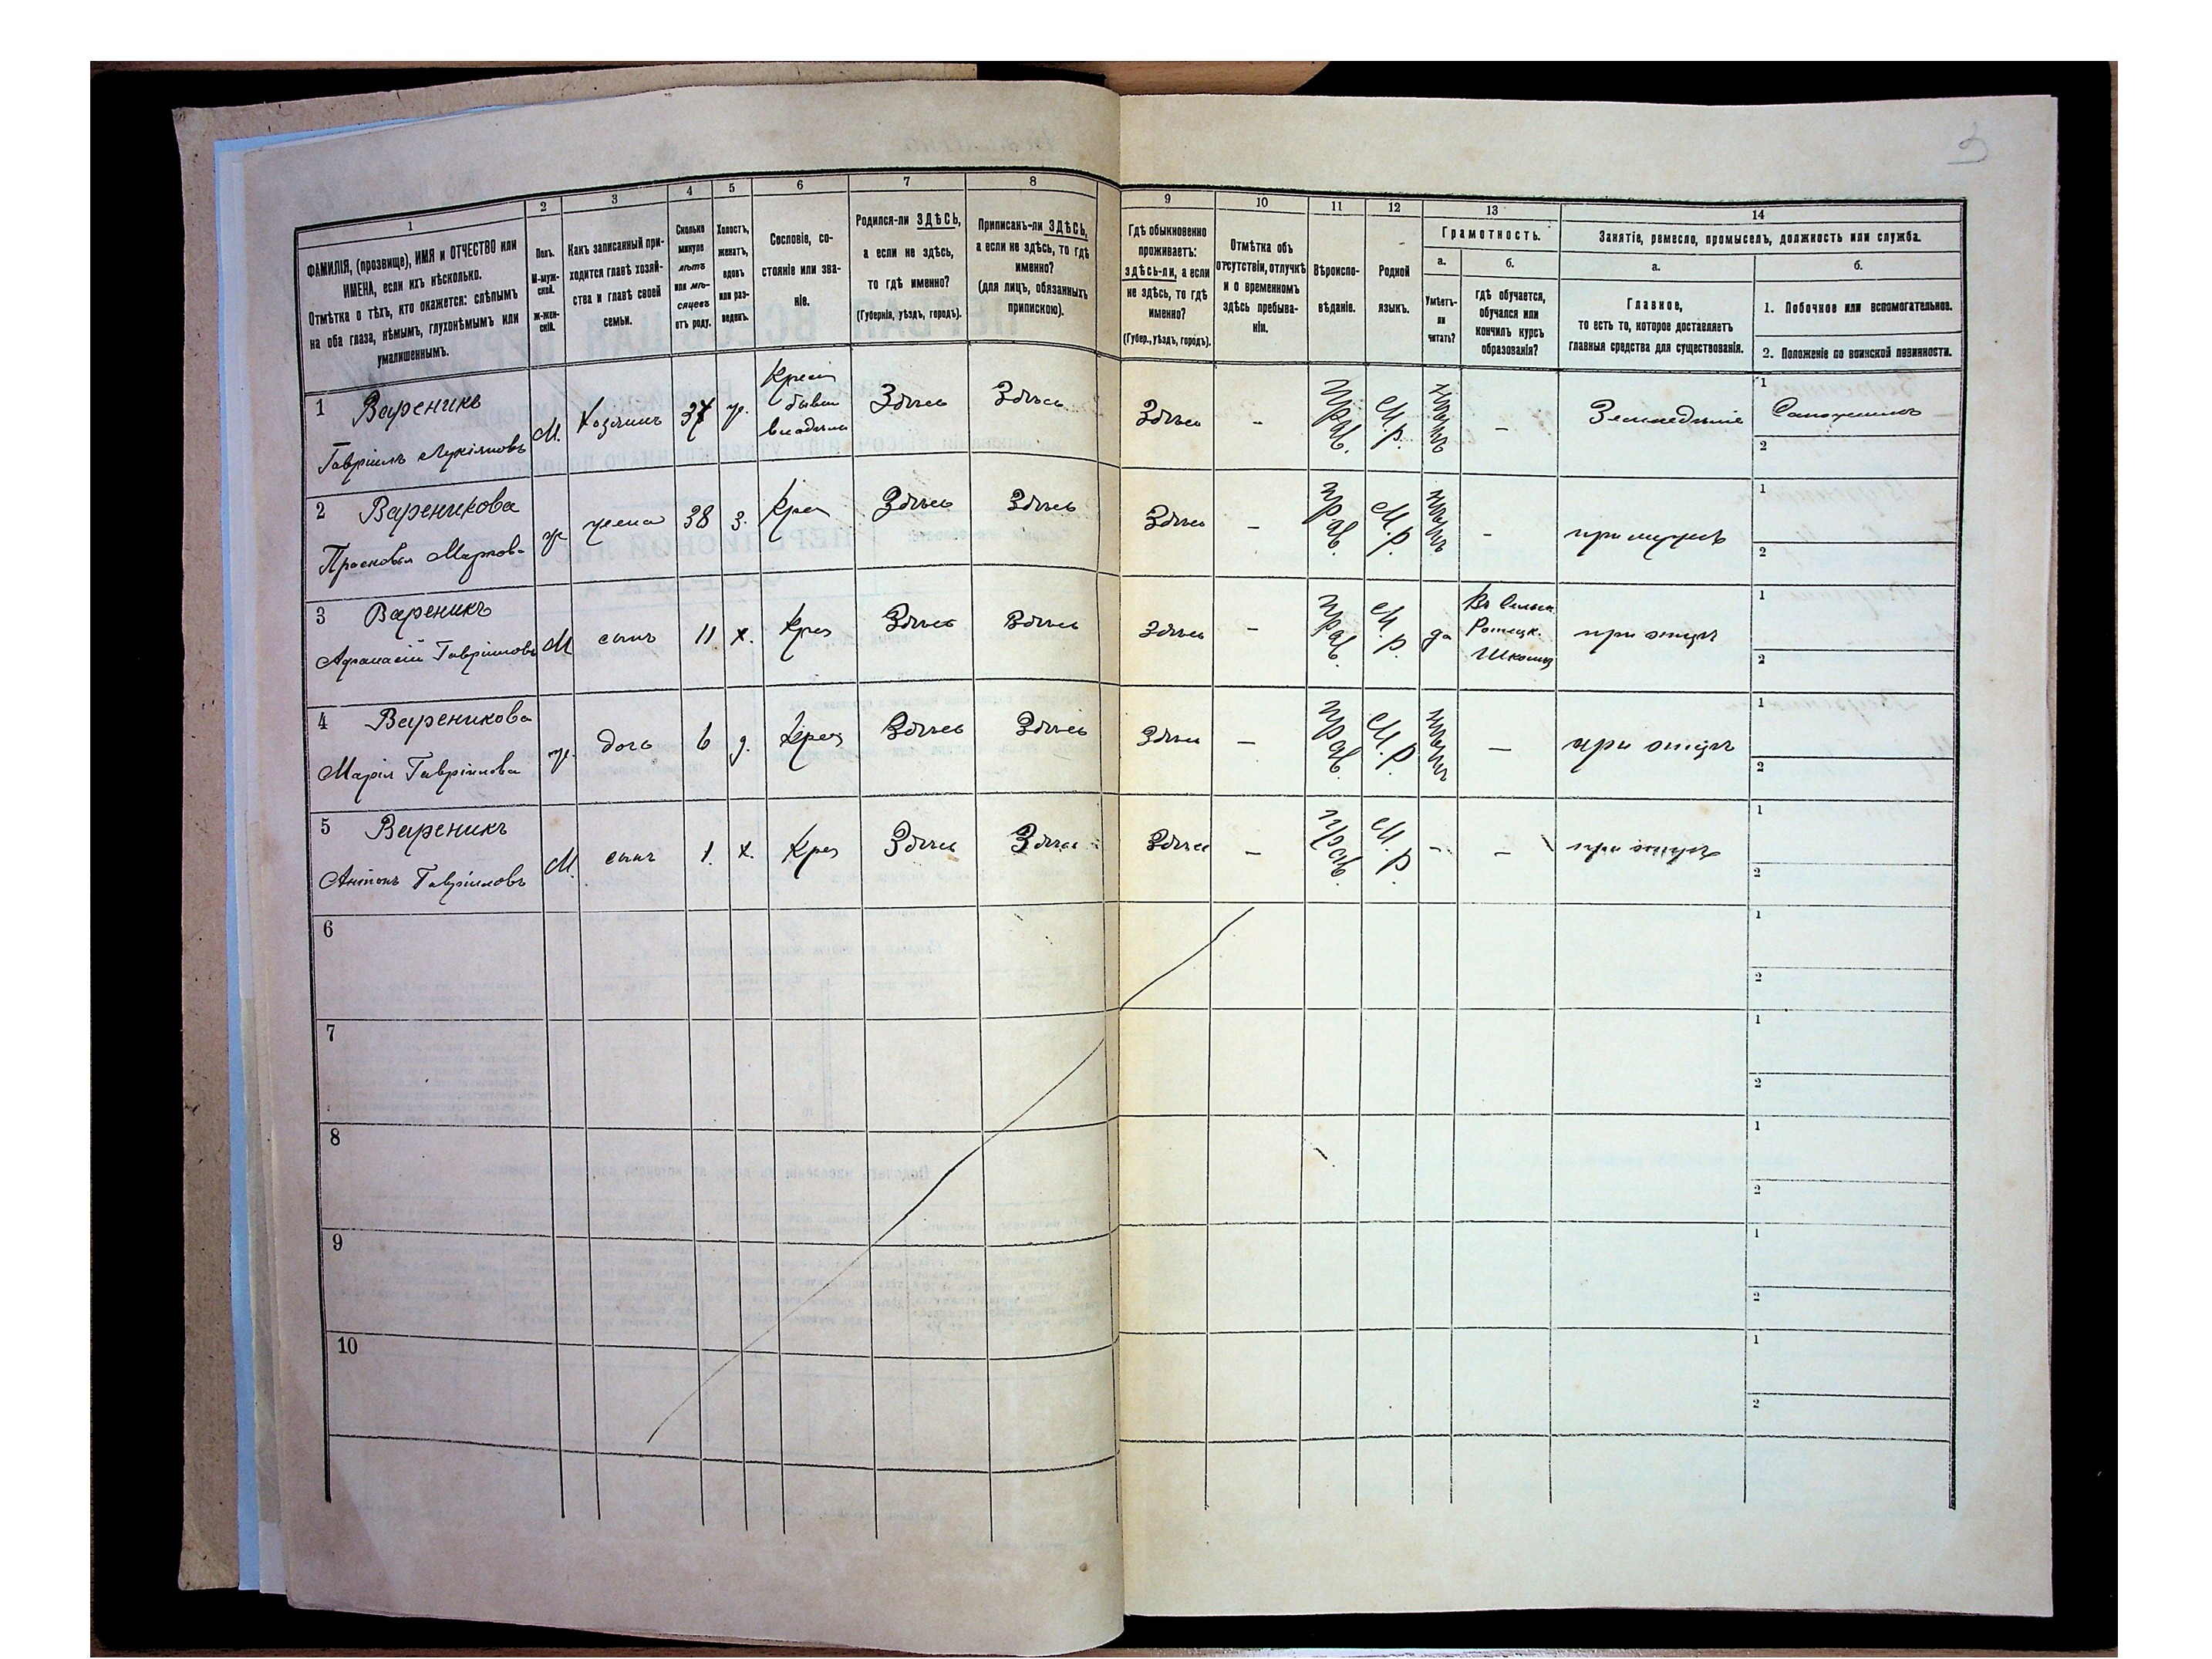 1
ФАМИЛІЯ, (прозвище), ИМЯ и ОТЧЕСТВО или
ИМЕНА, если ихъ нѣсколько.
Отмѣтка о тѣхъ, кто окажется: слѣпымъ
на оба глаза, нѣмымъ, глухонѣмымъ или
умалишеннымъ.
2
Полъ.
М-муж-
ской.
Ж-жен-
скій.
3
Какъ записанный при-
ходится главѣ хозяй-
ства и главѣ своей
семьи.
4
Сколько
минуло
лѣтъ
или мѣ-
сяцевъ
отъ роду.
5
Холостъ,
женатъ,
вдовъ
или раз-
веденъ.
6
Сословіе, со-
стояніе или зва-
ніе.
7
Родился-ли ЗДѢСЬ,
а если не здѣсь,
то гдѣ именно?
(Губернія, уѣздъ, городъ).
8
Приписанъ-ли ЗДѢСЬ,
а если не здѣсь, то гдѣ
именно?
(для лицъ, обязанныхъ
припискою).
9
Гдѣ обыкновенно
проживаетъ:
здѣсь-ли, а если
не здѣсь, то гдѣ
именно?
(Губер., уѣздъ, городъ).
10
Отмѣтка объ
отсутствіи, отлучкѣ
и о временномъ
здѣсь пребыва-
ніи.
11
Вѣроиспо-
вѣданіе.
12
Родной
языкъ.
13
Грамотность.
а.
Умѣетъ-
ли
читать?
б.
гдѣ обучается,
обучался или
кончилъ курсъ
образованія?
14
Занятіе, ремесло, промыселъ, должность или служба.
а.
Главное,
то есть то, которое доставляетъ
главныя средства для существованія.
б.
1. Побочное или вспомогательное.
2. Положеніе по воинской повинности.
1 Вареникъ
Гавріилъ Лукіяновъ
М. Хозяинъ 37 ж.
Крест
бывш
владѣлч
Здѣсь Здѣсь Здѣсь - прав. М.р. - Земледѣліе
1 Сапожникъ
2
2 Вареникова
Прасковья
ж жена 38 з. Крес Здѣсь Здѣсь Здѣсь - прав. М.р. - при мужѣ
1
2
3 Вареникъ
Афанасій Гавріиловъ
М сынъ 11 х. Крес Здѣсь Здѣсь Здѣсь - прав. М.р. да
Въ Сельск.
Школѣ
при отцѣ
1
2
4 Вареникова
Марія Гавріилова
ж. дочь 6 д. Крес Здѣсь Здѣсь Здѣсь - прав. М.р. - при отцѣ
1
2
5 Вареникъ
Антонъ Гавріиловъ
М. сынъ 1. х. Крес Здѣсь Здѣсь Здѣсь - прав. М.р. - - при отцѣ
1
2
6
1
2
7
1
2
8
1
2
9
1
2
10
1
2